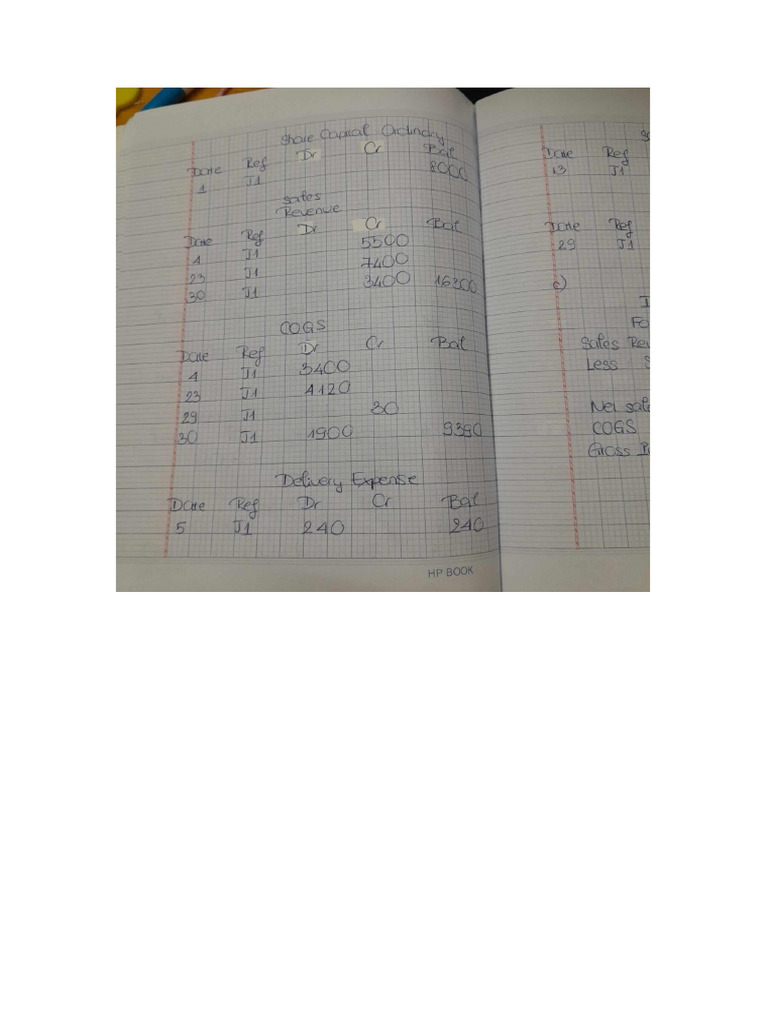 Share Capital Ordinary
Date Ref Dr Cr Bal
1 J1 8000
Sales
Revenue
Date Ref Dr Cr Bal
4 J1 5500
23 J1 7400
30 J1 3400 16300
COGS
Date Ref Dr Cr Bal
4 J1 3400
23 J1 4120
29 J1 30
30 J1 1900 9390
Delivery Expense
Date Ref Dr Cr Bal
5 J1 240 240
HP BOOK
Date Ref
13 J1
Date Ref
29 J1
c)
Sales Rev
Less
Net sale
COGS
Gross